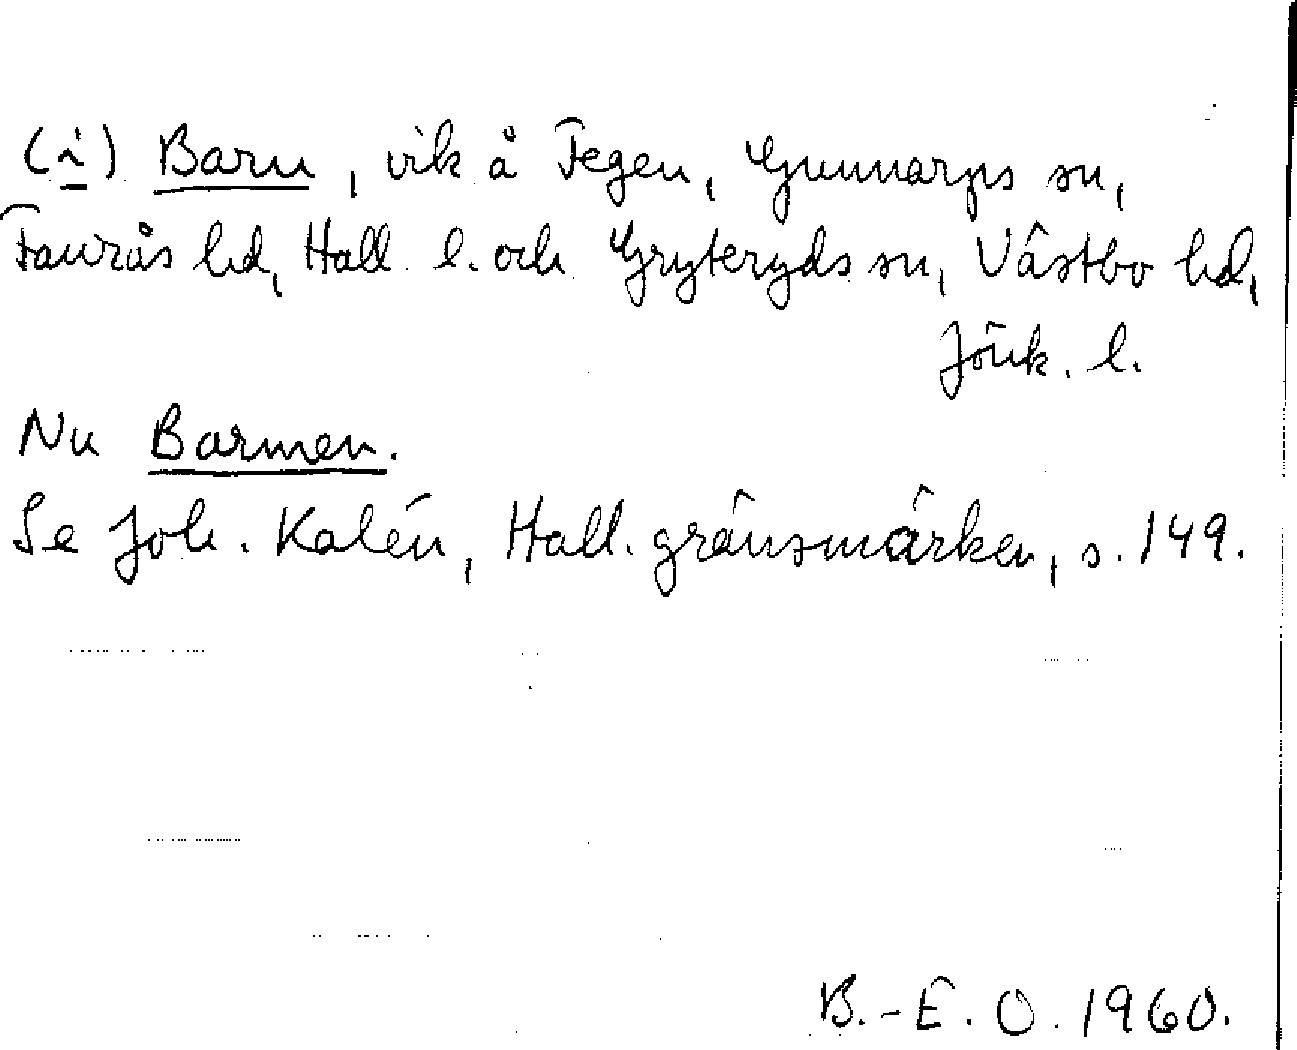 (i) Barn, vik å Fegen, Gunnarps sn,
Faurås hd, Hall. l. och Gryteryds sn, Västbo hd,
Jönk. l.
Nu Barmen.
Se Joh. Kalén, Hall. gränsmärken, s. 149.
B.-E. O. 1960.